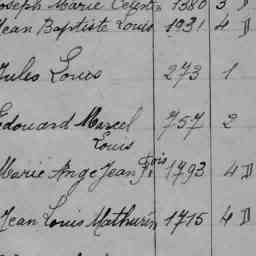 Joseph Marie Celestin 1380 3 D
Jean Baptiste Louis 1931 4 D
Jules Louis 273 1
Edouard Marcel 757 2
Louis
Marie Ange Jean Fois 1793 4 D
Jean Louis Mathurin 1715 4 D